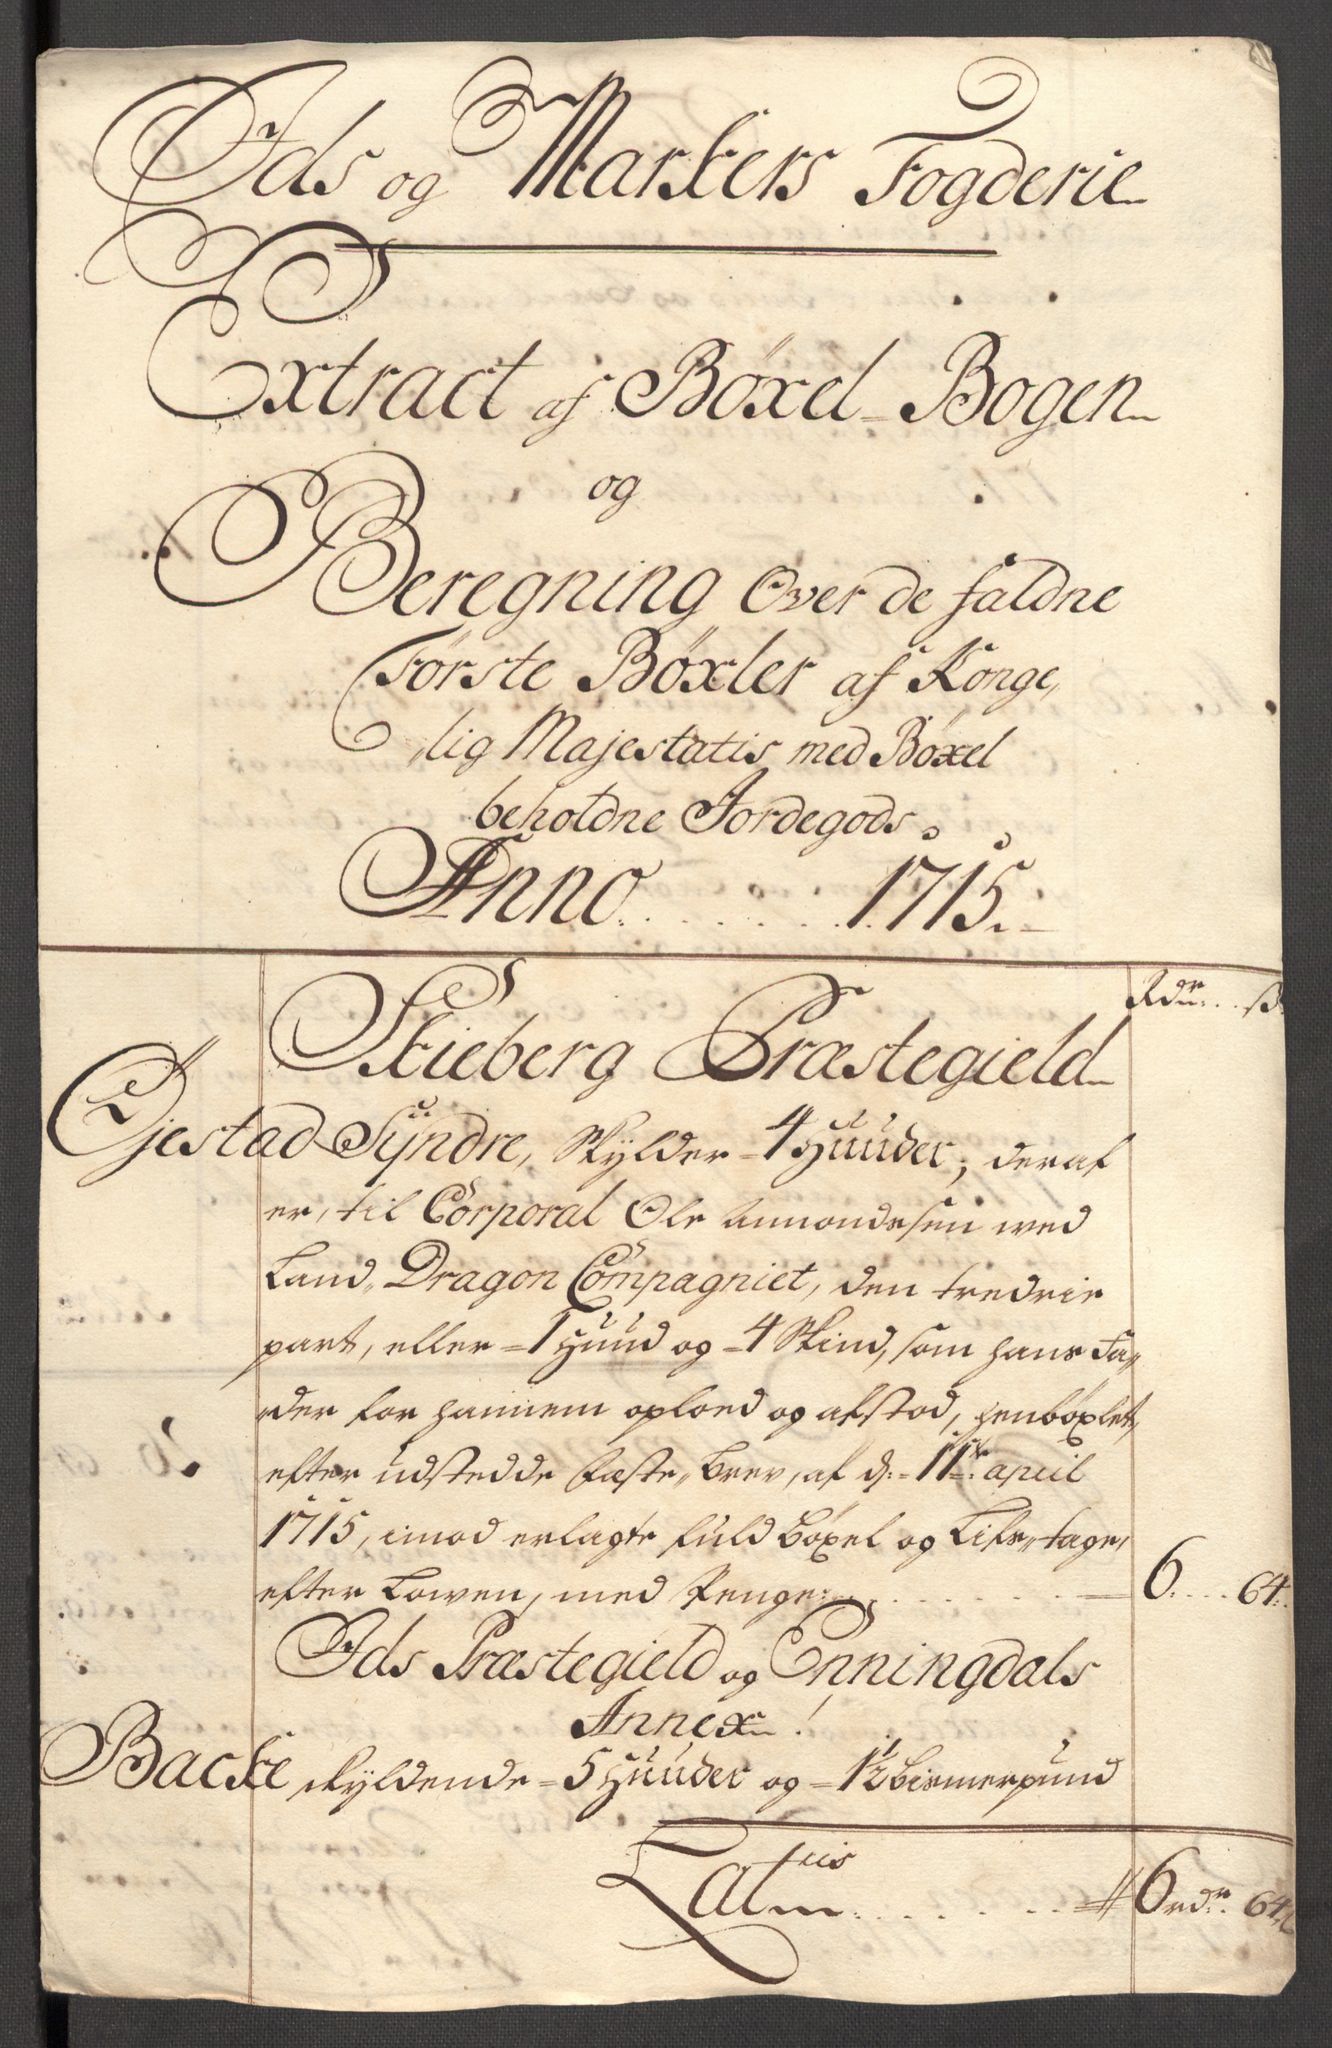 Ids og Markers Fogderie
Extract af Bøxel-Bogen
og
Beregning Over de faldne
Første Bøxler af Konge,
lig Majestatis med Bøxel
beholdne Jordegods.
Anno 1715.
Rdr ß
Skieberg Præstegield
Gjestad Syndre, skylder 4 Huuder, deraf
er, til Corporal Ole Amondesen ved
Land, Dragon Compagniet, den tredie
part, eller 1 Huud og 4 Skind, som hans Fa,,
der for hannem oploed og afstod, henbøxlet,
efter udstedde Fæste, Brev, af d. 11te april
1715, imod erlagte fuld Bøxel og
efter Lowen, med Penge 6 64.
Ids Præstegield og Enningdals
Annex!
Backe, skyldende 5 Huuder og 1½ bismerpund
Latus 6 rdr 64